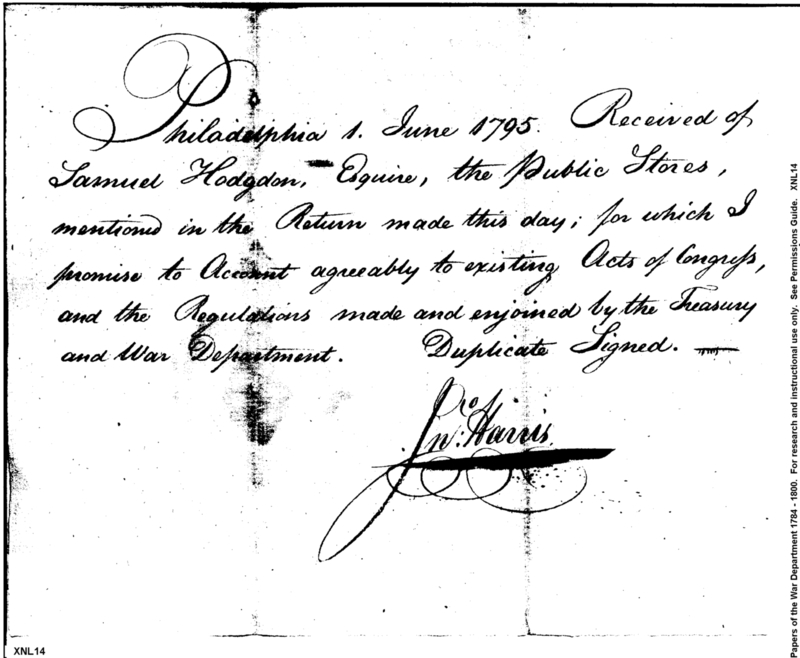 Philadelphia 1. June 1795. Received of
Samuel Hodgdon, Esquire, the Public Stores,
mentioned in the Return made this day; for which I
promise to Account agreeably to existing Acts of Congreſs,
and the Regulations made and enjoined by the Treasury
and War Department. Duplicate Signed.
Jno: Harris.
XNL14
Papers of the War Department 1784 - 1800. For research and instructional use only. See Permissions Guide. XNL14